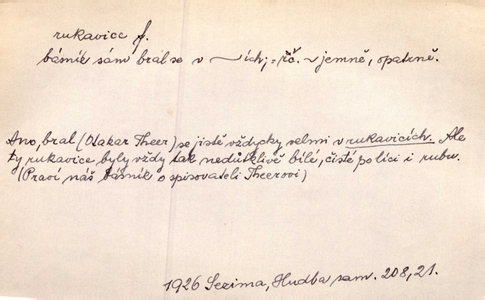 rukavice f.
básník sám bral se v ~ích; = rč. v jemně, opatrně.
Ano, bral (Otakar Theer) se jistě vždycky velmi v rukavicích. Ale
ty rukavice byly vždy tak nedůtklivě bílé, čisté po líci i rubu.
(Praví náš básník o spisovateli Theerovi)
1926 Sezima, Hudba sam. 208, 21.